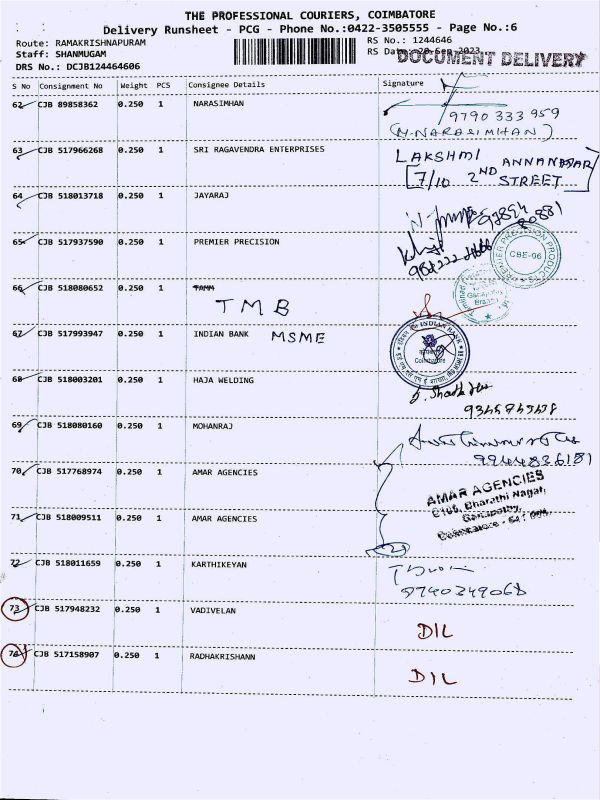 THE PROFESSIONAL COURIERS, COIMBATORE
Delivery Runsheet - PCG - Phone No.:0422-3505555 - Page No.:6
Route: RAMAKRISHNAPURAM
RS No.: 1244646
Staff: SHANMUGAM
RS Date: 20-Sep-2023
DOCUMENT DELIVERY
DRS No.: DCJB124464606
S No Consignment No Weight PCS Consignee Details Signature
62 CJB 89858362 0.250 1 NARASIMHAN
9790 333 959
(N.NARASIMHAN)
63 CJB 517966268 0.250 1 SRI RAGAVENDRA ENTERPRISES
LAKSHMI
7/10 2ND STREET
64 CJB 518013718 0.250 1 JAYARAJ
65 CJB 517937590 0.250 1 PREMIER PRECISION
PREMIER PRECISION PRODUCTS
CBE-06
66 CJB 518080652 0.250 1 TAMN
TMB
67 CJB 517993947 0.250 1 INDIAN BANK MSME
INDIAN BANK
Coimbatore
68 CJB 518003201 0.250 1 HAJA WELDING
69 CJB 518080160 0.250 1 MOHANRAJ
9944836181
70 CJB 517768974 0.250 1 AMAR AGENCIES
AMAR AGENCIES
Bharathi Nagar,
Ganapathy,
71 CJB 518009511 0.250 1 AMAR AGENCIES
72 CJB 518011659 0.250 1 KARTHIKEYAN
9740349068
73 CJB 517948232 0.250 1 VADIVELAN
DIL
74 CJB 517158907 0.250 1 RADHAKRISHANN
DIL